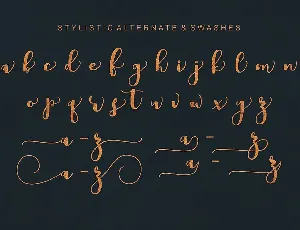 STYLISTIC ALTERNATE & SWASHES
a b c d e f g h i j k l m n
o p q r s t u v w x y z
a - z a - z
a - z a - z